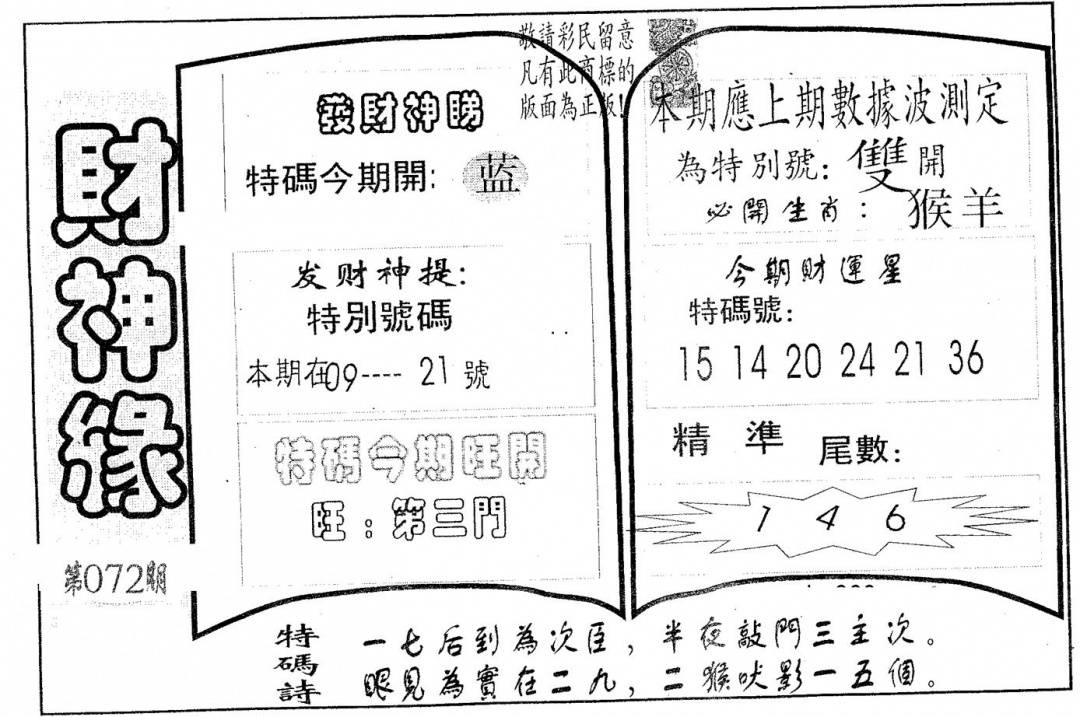 財神緣
第072期
敬請彩民留意
凡有此商標的
版面為正版!
發財神睇
特碼今期開: 蓝
发财神提:
特別號碼
本期在09----21號
特碼今期旺開
旺:第三門
本期應上期數據波測定
為特別號:雙開
必開生肖:猴羊
今期財運星
特碼號:
15 14 20 24 21 36
精準 尾數:
1 4 6
特碼詩
一七后到為次臣,半夜敲門三主次。
眼見為實在二九,二猴吠影一五個。